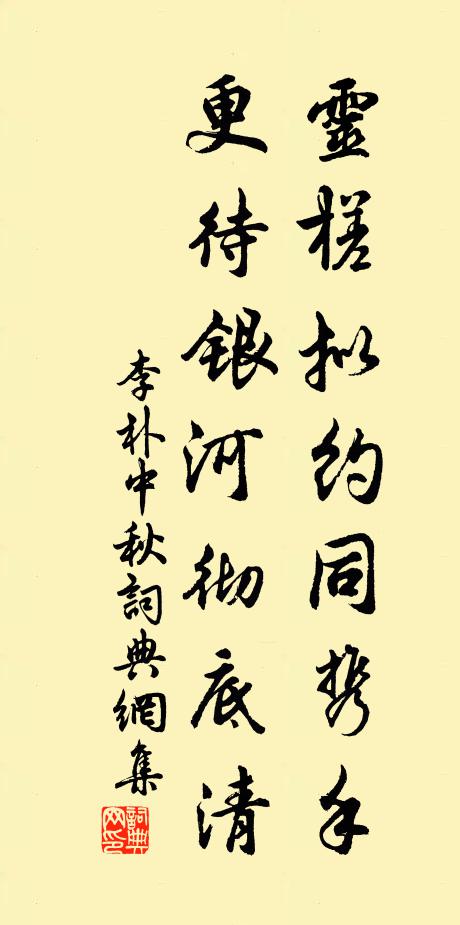 靈槎拟约同携手
更待銀河彻底清
李朴中秋詞典網集
詞典网印